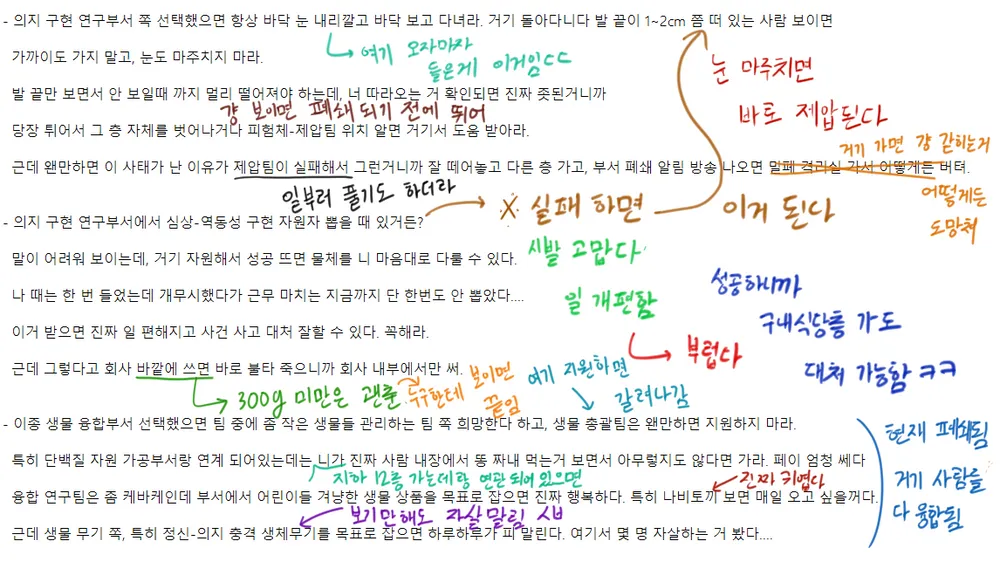 - 의지 구현 연구부서 쪽 선택했으면 항상 바닥 눈 내리깔고 바닥 보고 다녀라. 거기 돌아다니다 발 끝이 1~2cm 쯤 떠 있는 사람 보이면
가까이도 가지 말고, 눈도 마주치지 마라.
여기 오자마자
들은게 이거임ㄷㄷ
눈 마주치면
바로 제압된다
발 끝만 보면서 안 보일때 까지 멀리 떨어져야 하는데, 너 따라오는 거 확인되면 진짜 좃된거니까
걍 보이면 폐쇄 되기 전에 뛰어
당장 튀어서 그 층 자체를 벗어나거나 피험체-제압팀 위치 알면 거기서 도움 받아라.
거기 가면 걍 갇히는거
근데 왠만하면 이 사태가 난 이유가 제압팀이 실패해서 그런거니까 잘 떼어놓고 다른 층 가고, 부서 폐쇄 알림 방송 나오면 밀폐 격리실 가서 어떻게든 버텨.
어떻게든
도망쳐
일부러 풀기도 하더라
- 의지 구현 연구부서에서 심상-역동성 구현 자원자 뽑을 때 있거든?
X 실패 하면
이거 된다
말이 어려워 보이는데, 거기 자원해서 성공 뜨면 물체를 니 마음대로 다룰 수 있다.
시발 고맙다
나 때는 한 번 들었는데 개무시했다가 근무 마치는 지금까지 단 한번도 안 뽑았다....
일 개편함
부럽다
성공하니까
구내식당층 가도
대처 가능함 ㅋㅋ
이거 받으면 진짜 일 편해지고 사건 사고 대처 잘할 수 있다. 꼭해라.
근데 그렇다고 회사 바깥에 쓰면 바로 불타 죽으니까 회사 내부에서만 써.
300g 미만은 괜춘
누구한테 보이면
끝임
여기 지원하면
갈려나감
- 이종 생물 융합부서 선택했으면 팀 중에 좀 작은 생물들 관리하는 팀 쪽 희망한다 하고, 생물 총괄팀은 왠만하면 지원하지 마라.
특히 단백질 자원 가공부서랑 연계 되어있는데는 니가 진짜 사람 내장에서 똥 짜내 먹는거 보면서 아무렇지도 않다면 가라. 페이 엄청 쎄다
지하 12층 가는데랑 연관 되어 있으면
진짜 귀엽다
융합 연구팀은 좀 케바케인데 부서에서 어린이들 겨냥한 생물 상품을 목표로 잡으면 진짜 행복하다. 특히 나비토끼 보면 매일 오고 싶을꺼다.
보기만해도 자살말림 시ㅂ
근데 생물 무기 쪽, 특히 정신-의지 충격 생체무기를 목표로 잡으면 하루하루가 피 말린다. 여기서 몇 명 자살하는 거 봤다....
현재 폐쇄됨
거기 사람들
다 융합됨